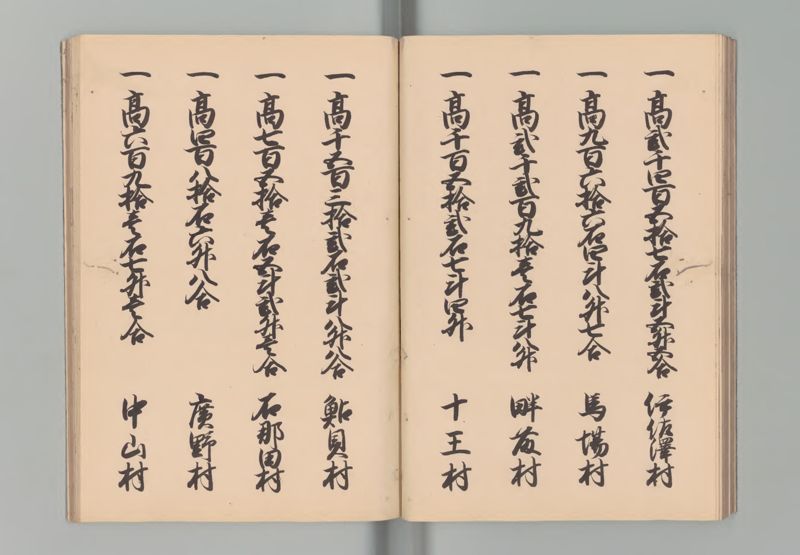 一 高弐千四百五拾七石弐斗五升五合 伊佐澤村
一 高九百六拾六石四斗八升七合 馬場村
一 高弐千弐百九拾壱石七斗八升 畔藤村
一 高千百五拾弐石七斗四升 十王村
一 高千五百三拾弐石弐斗八升八合 鮎貝村
一 高七百五拾壱石五斗弐升壱合 石那田村
一 高四百八拾石六升八合 廣野村
一 高六百九拾壱石七升壱合 中山村